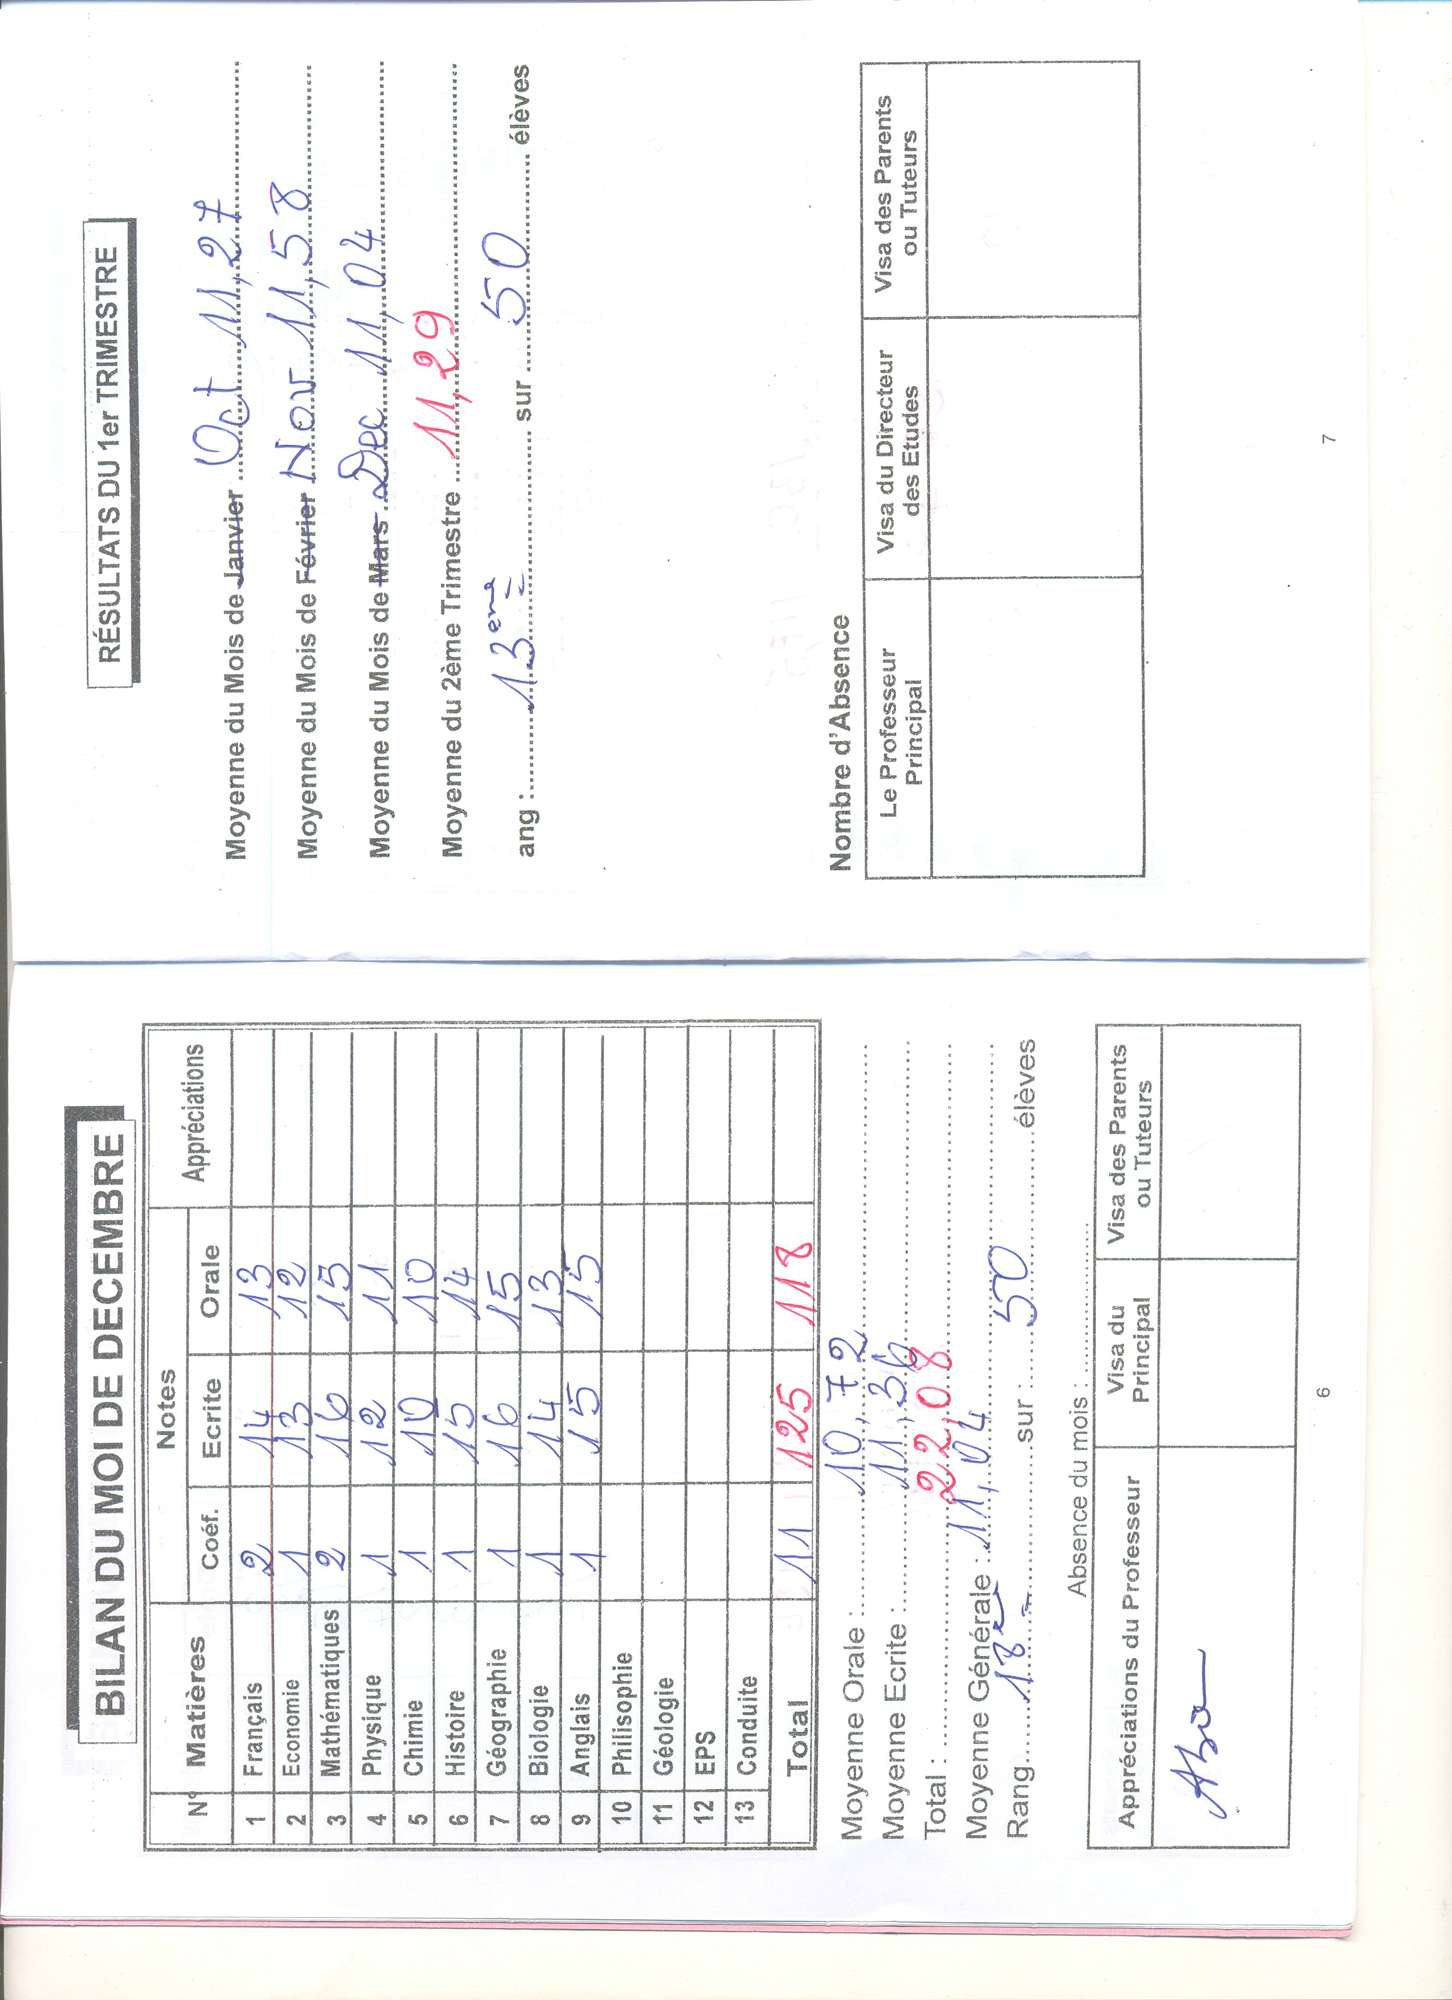 BILAN DU MOI DE DECEMBRE
N° Matières Notes Appréciations
Coéf. Ecrite Orale
1 Français 2 14 13
2 Economie 1 13 12
3 Mathématiques 2 16 15
4 Physique 1 12 11
5 Chimie 1 10 10
6 Histoire 1 15 14
7 Géographie 1 16 15
8 Biologie 1 14 13
9 Anglais 1 15 15
10 Philisophie
11 Géologie
12 EPS
13 Conduite
Total 11 125 118
Moyenne Orale : 10,72
Moyenne Ecrite : 11,36
Total : 22,08
Moyenne Générale : 11,04
Rang 18e sur 50 élèves
Absence du mois :
Appréciations du Professeur Visa du Principal Visa des Parents ou Tuteurs
6
RÉSULTATS DU 1er TRIMESTRE
Moyenne du Mois de Janvier Oct 11,27
Moyenne du Mois de Février Nov 11,58
Moyenne du Mois de Mars Dec 11,04
Moyenne du 2ème Trimestre 11,29
ang : 13eme sur 50 élèves
Nombre d'Absence
Le Professeur Principal Visa du Directeur des Etudes Visa des Parents ou Tuteurs
7